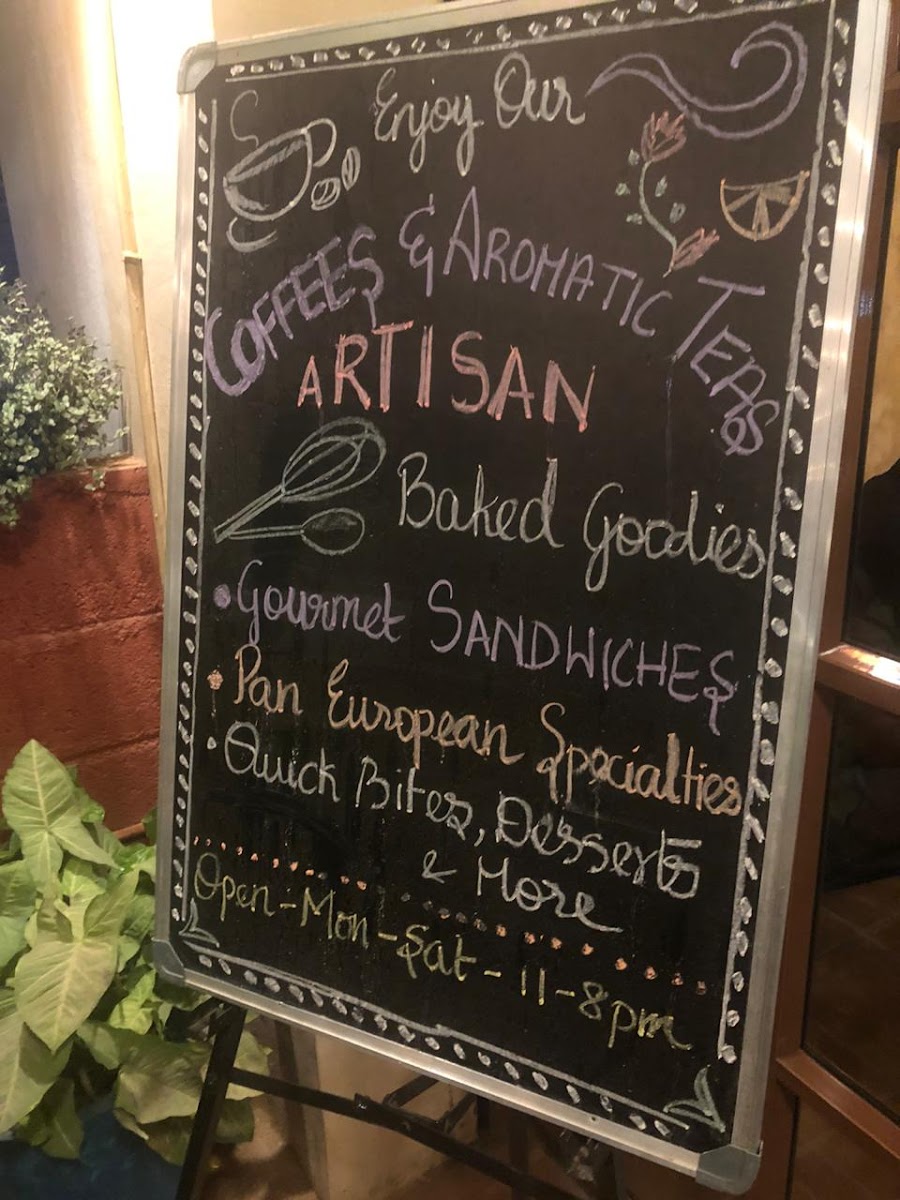 Enjoy Our
COFFEES & AROMATIC TEAS
ARTISAN
Baked Goodies
• Gourmet SANDWICHES
• Pan European Specialties
• Quick Bites, Desserts
& More
Open - Mon - Sat - 11 - 8 pm